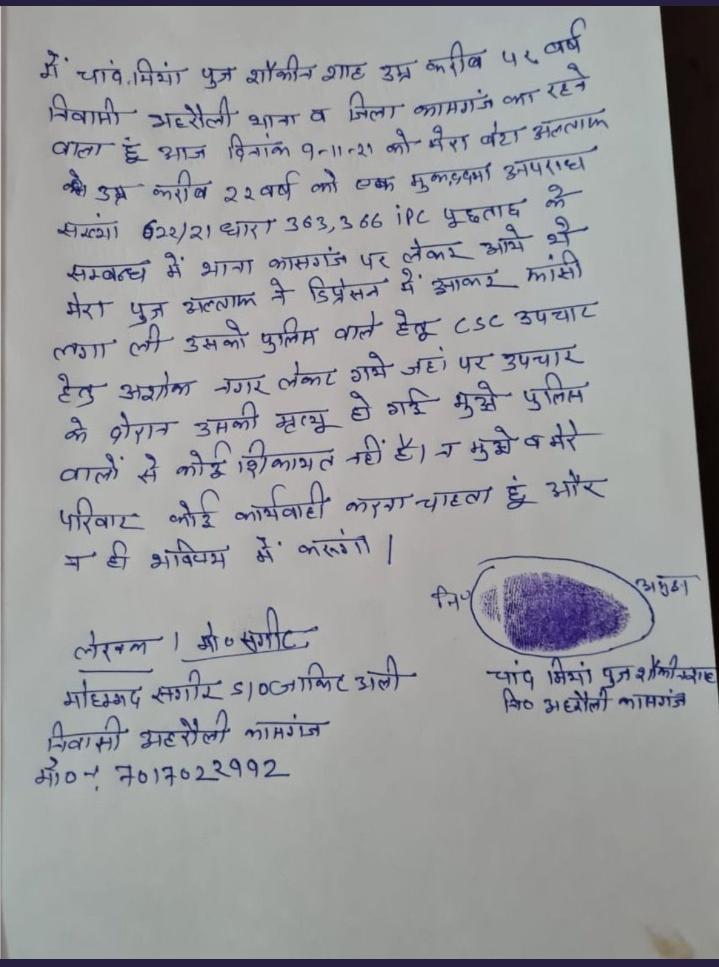 में चांद मियां पुत्र शौकीन शाह उम्र करीब ५५ वर्ष
निवासी अहरौली थाना व जिला कासगंज का रहने
वाला हूं आज दिनांक 9-11-21 को मेरा बेटा अल्ताफ
उम्र करीब २२ वर्ष को एक मुकद्दमा अपराध
संख्यां 622/21 धारा 363,366 iPC पूछताछ के
सम्बन्ध में थाना कासगंज पर लेकर आये थे
मेरा पुत्र अल्ताफ ने डिप्रेसन में आकर फांसी
लगा ली उसको पुलिस वाले हेतू CSC उपचार
हेतु अशोक नगर लेकर गये जहां पर उपचार
के दौरान उसकी मृत्यू हो गई मुझे पुलिस
वालों से कोई शिकायत नहीं है। न मुझे व मेरे
परिवार कोई कार्यवाही करना चाहता हूं और
न ही भविष्य में करूंगा |
नि० अगुंठा
लेखक | मो० सगीर
चांद मियां पुत्र शौकीन शाह
मोहम्मद सगीर S/O जाकिर अली
नि० अहरौली कासगंज
निवासी अहरौली कासगंज
मो० नं. 7017022992